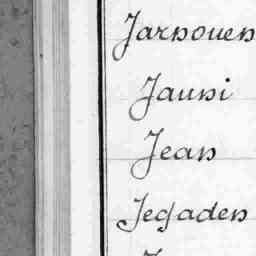 Jarnouen
Jauni
Jean
Jegaden